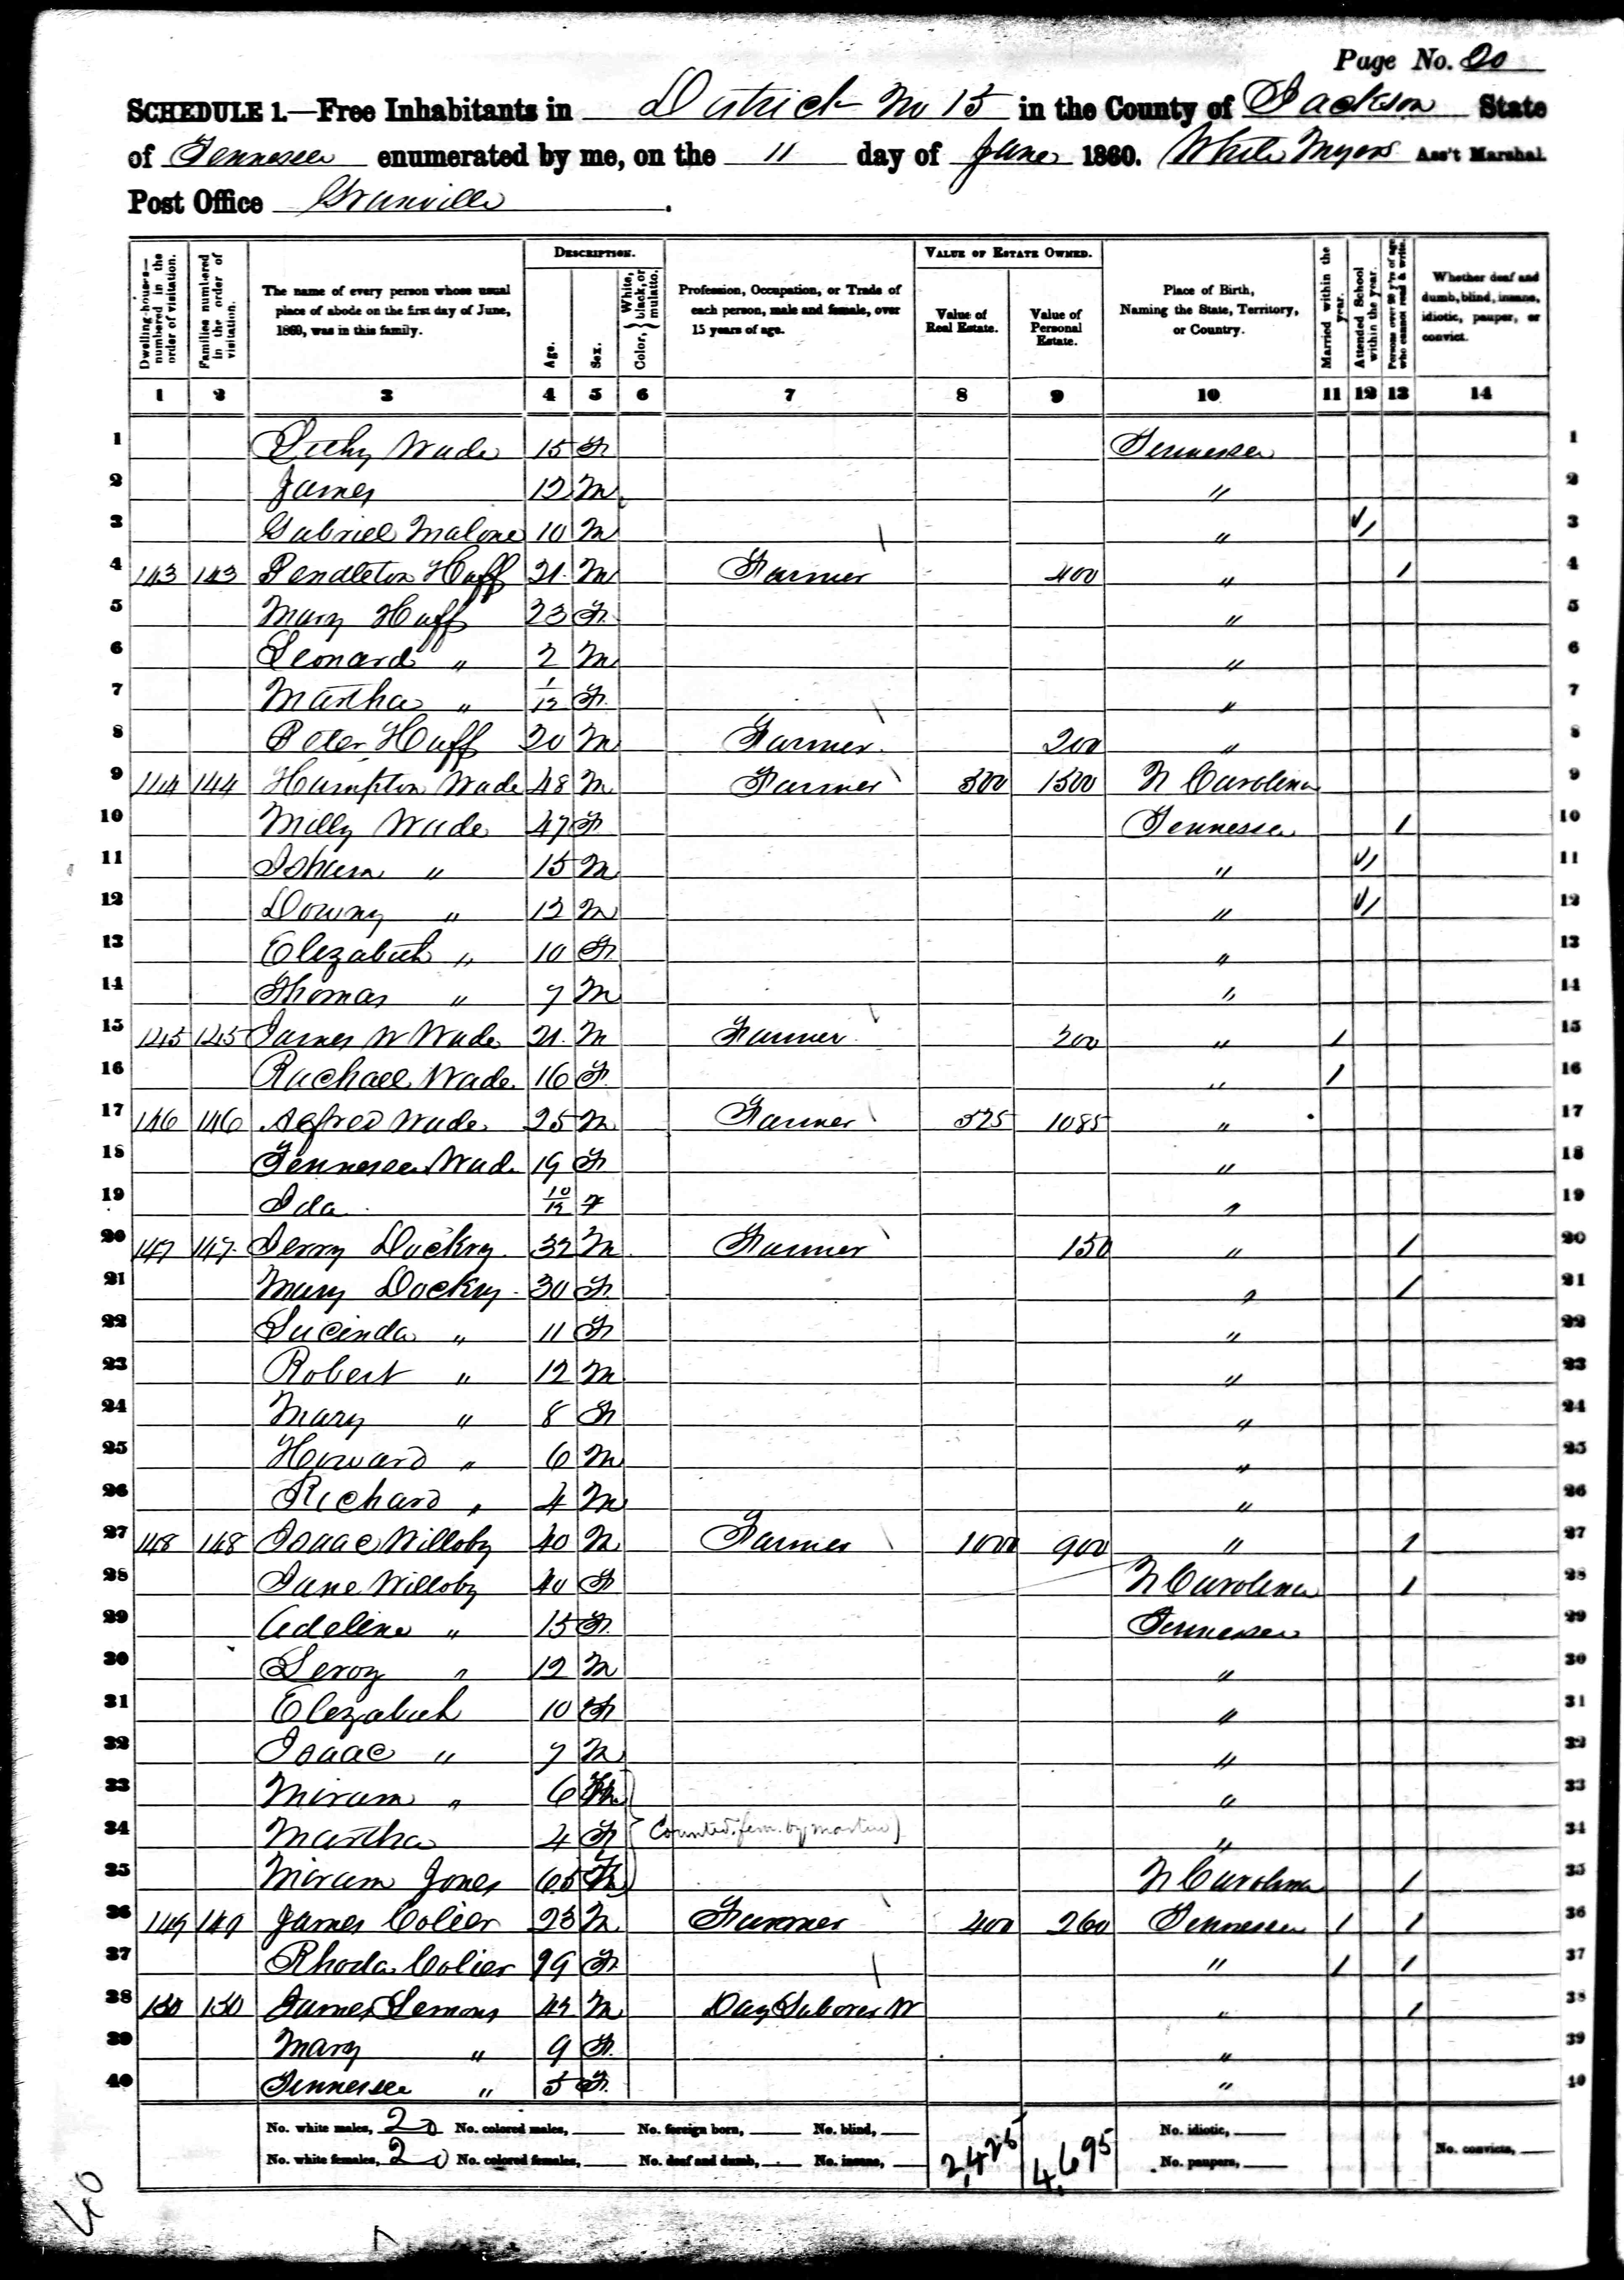 Page No. 20
SCHEDULE 1.—Free Inhabitants in District No 15 in the County of Jackson State
of Tennessee enumerated by me, on the 11 day of June 1860. White Myers Ass't Marshal.
Post Office Granville.
Dwelling-houses—numbered in the order of visitation.
Families numbered in the order of visitation.
The name of every person whose usual place of abode on the first day of June, 1860, was in this family.
DESCRIPTION.
Age.
Sex.
Color, White, black, or mulatto.
Profession, Occupation, or Trade of each person, male and female, over 15 years of age.
VALUE OF ESTATE OWNED.
Value of Real Estate.
Value of Personal Estate.
Place of Birth, Naming the State, Territory, or Country.
Married within the year.
Attended School within the year.
Persons over 20 y'rs of age who cannot read & write.
Whether deaf and dumb, blind, insane, idiotic, pauper, or convict.
1 2 3 4 5 6 7 8 9 10 11 12 13 14
1 Wade 15 F Tennessee 1
2 James 12 M " 2
3 Gabriel Malone 10 M " / 3
4 143 143 Pendleton Huff 21 M Farmer 400 " / 4
5 Mary Huff 23 F " 5
6 Leonard " 2 M " 6
7 Martha " 1/12 F " 7
8 Peter Huff 20 M Farmer 200 " 8
9 144 144 Hampton Wade 48 M Farmer 500 1500 N Carolina 9
10 Milly Wade 47 F Tennessee / 10
11 Isham " 15 M " / 11
12 Downy " 12 M " / 12
13 Elezabeth " 10 F " 13
14 Thomas " 7 M " 14
15 145 145 James W Wade 21 M Farmer 200 " / 15
16 Rachael Wade 16 F " / 16
17 146 146 Alfred Wade 25 M Farmer 525 1085 " 17
18 Tennessee Wade 19 F " 18
19 Ida 10/12 F " 19
20 147 147 Jerry Dockry 32 M Farmer 150 " / 20
21 Mary Dockry 30 F " / 21
22 Lucinda " 11 F " 22
23 Robert " 12 M " 23
24 Mary " 8 F " 24
25 Howard " 6 M " 25
26 Richard " 4 M " 26
27 148 148 Isaac Willoby 40 M Farmer 1000 900 " / 27
28 Jane Willoby 40 F N Carolina / 28
29 Adeline " 15 F Tennessee 29
30 Leroy " 12 M " 30
31 Elezabeth 10 F " 31
32 Isaac " 7 M " 32
33 Miram " 6 F " 33
34 Martha 4 F Counted fem. by " 34
35 Miram Jones 65 F N Carolina / 35
36 149 149 James Colier 23 M Farmer 400 260 Tennessee / / 36
37 Rhoda Colier 29 F " / / 37
38 150 150 James Lemons 42 M Day Laborer " / 38
39 Mary " 9 F " 39
40 Tennessee " 5 F " 40
No. white males, 20 No. colored males, No. foreign born, No. blind, 2,425 4,695 No. idiotic,
No. white females, 20 No. colored females, No. deaf and dumb, No. insane, No. paupers, No. convicts,
40